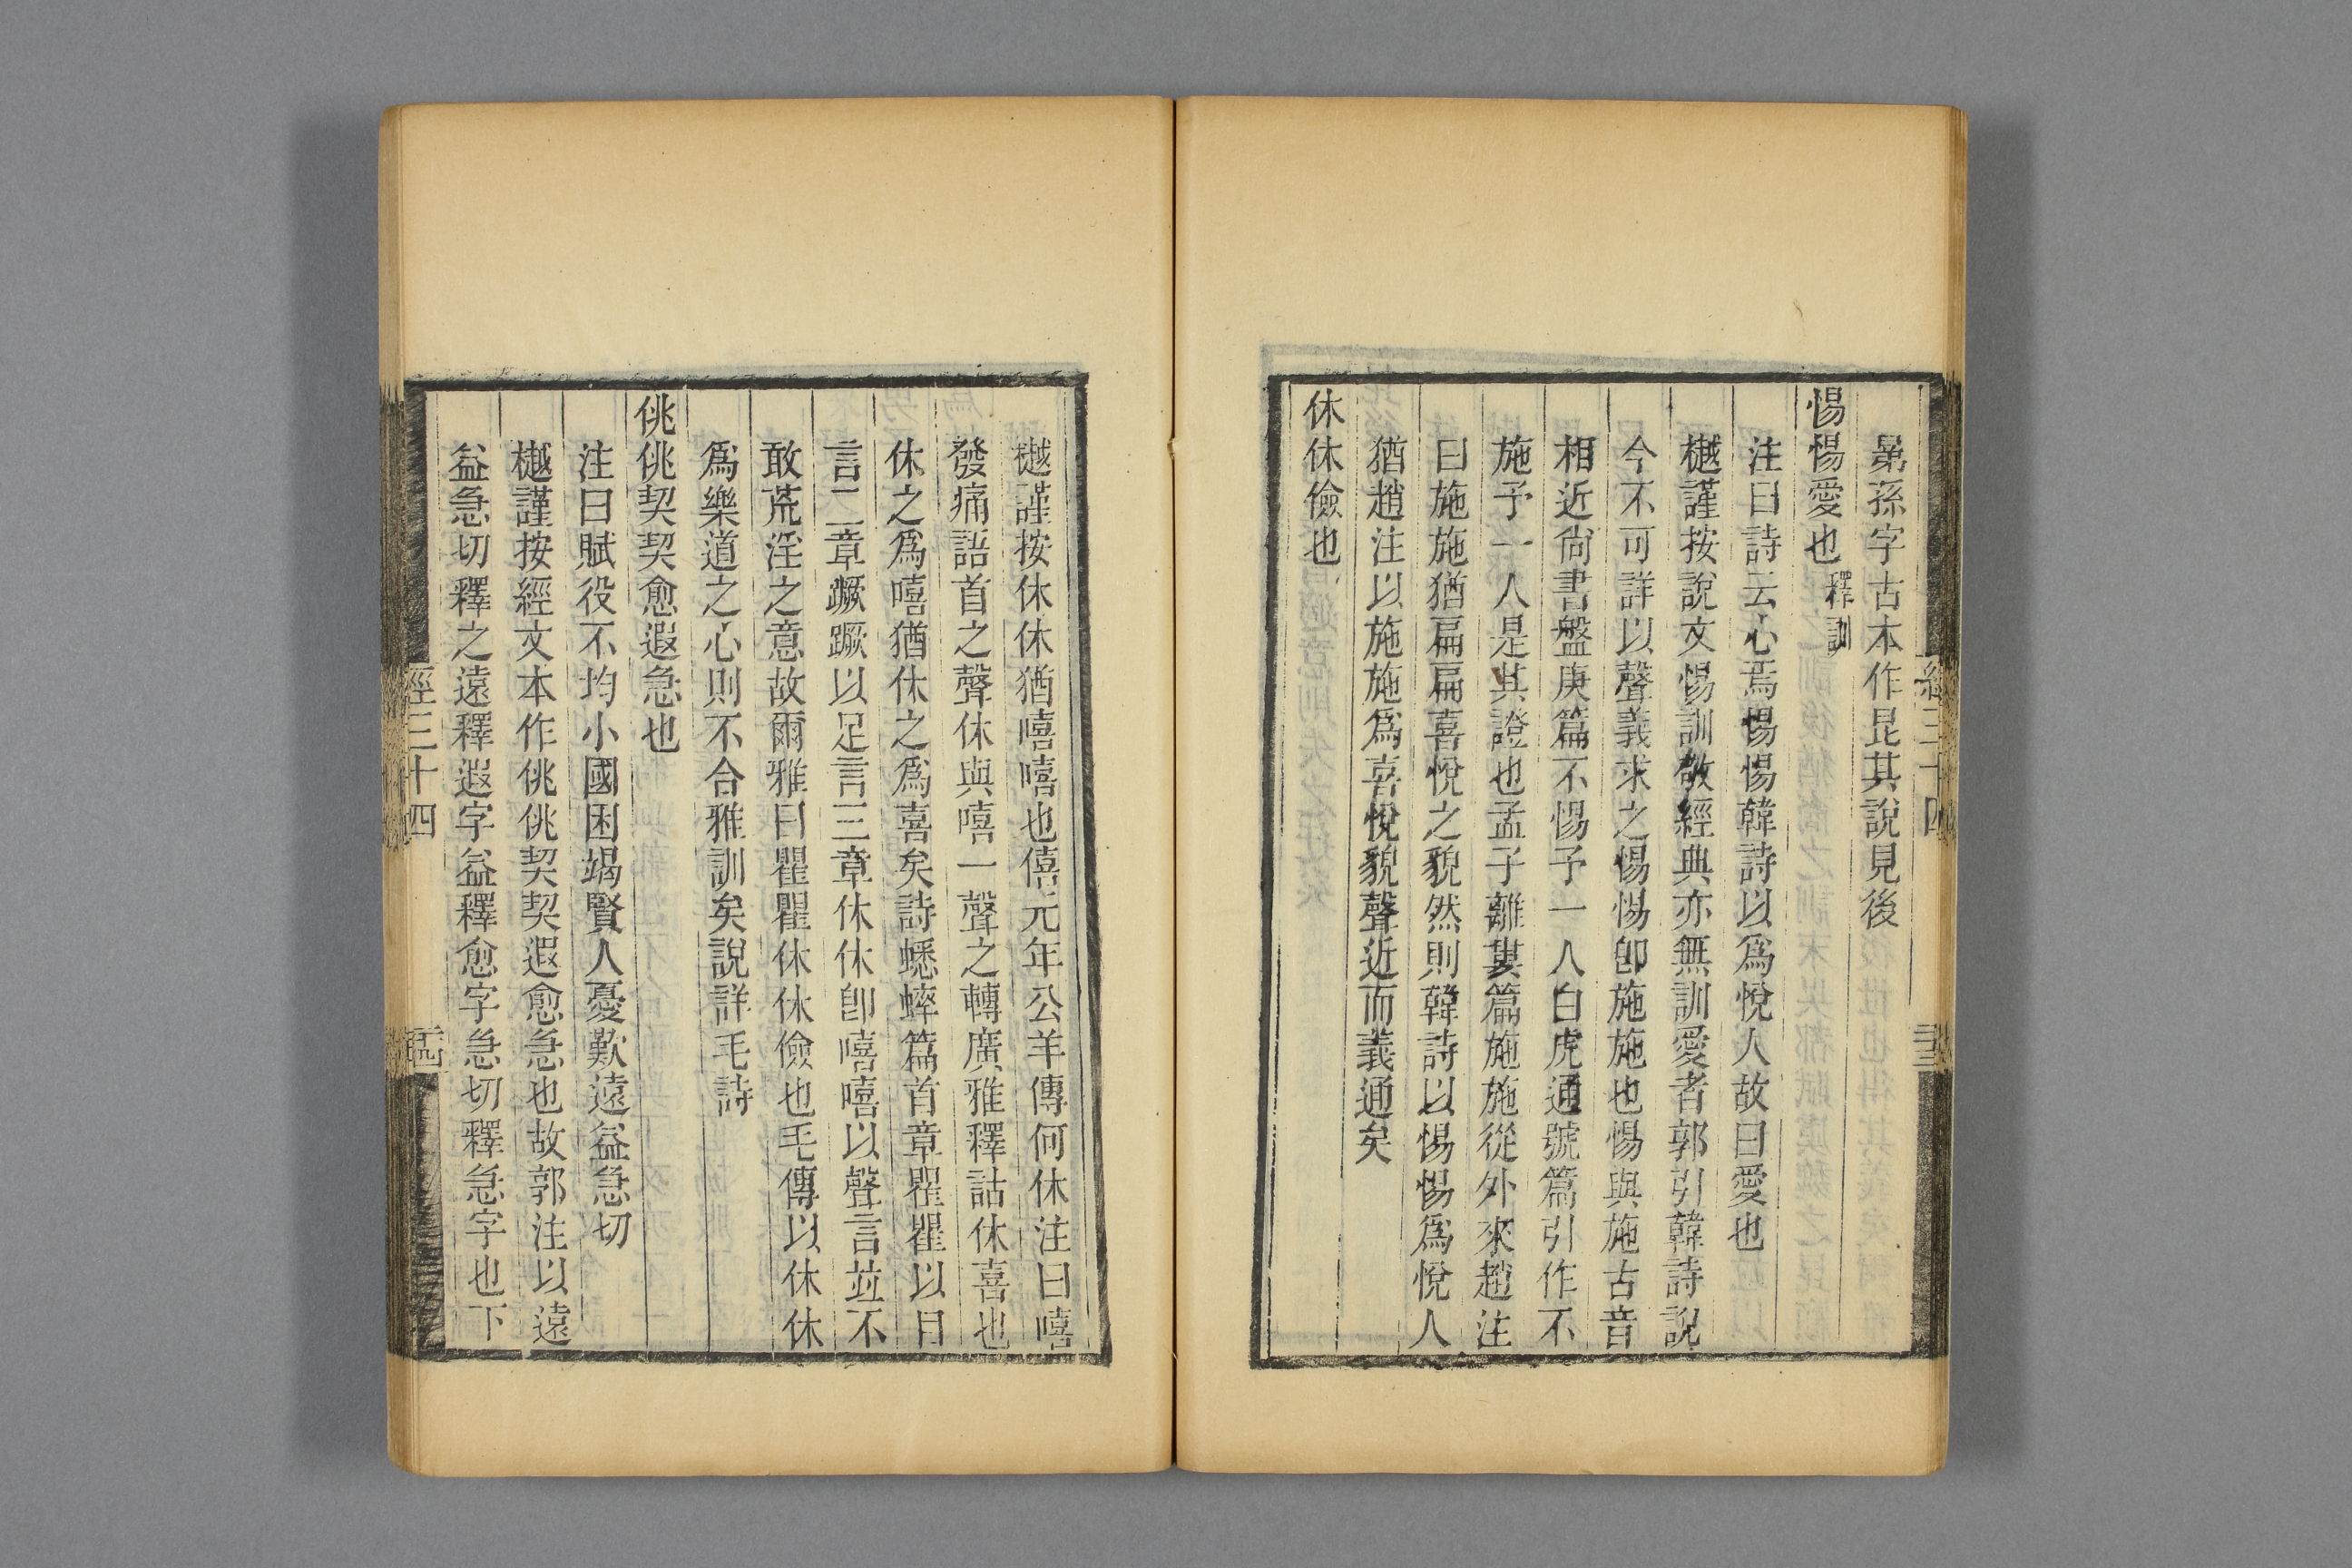 晜孫字古本作昆其說見後
惕惕愛也釋訓
注曰詩云心焉惕惕韓詩以爲悅人故曰愛也
樾謹按說文惕訓敬經典亦無訓愛者郭引韓詩說
今不可詳以聲義求之惕惕卽施施也惕與施古音
相近尙書盤庚篇不惕予一人白虎通號篇引作不
施予一人是其證也孟子離婁篇施施從外來趙注
曰施施猶扁扁喜悅之貌然則韓詩以惕惕爲悅人
猶趙注以施施爲喜悅貌聲近而義通矣
休休儉也
樾謹按休休猶嘻嘻也僖元年公羊傳何休注曰嘻
發痛語首之聲休與嘻一聲之轉廣雅釋詁休喜也
休之爲嘻猶休之爲喜矣詩蟋蟀篇首章瞿瞿以目
言二章蹶蹶以足言三章休休卽嘻嘻以聲言竝不
敢荒淫之意故爾雅曰瞿瞿休休儉也毛傳以休休
爲樂道之心則不合雅訓矣說詳毛詩
佻佻契契愈遐急也
注曰賦役不均小國困竭賢人憂歎遠益急切
樾謹按經文本作佻佻契契遐愈急也故郭注以遠
益急切釋之遠釋遐字益釋愈字急切釋急字也下
經三十四